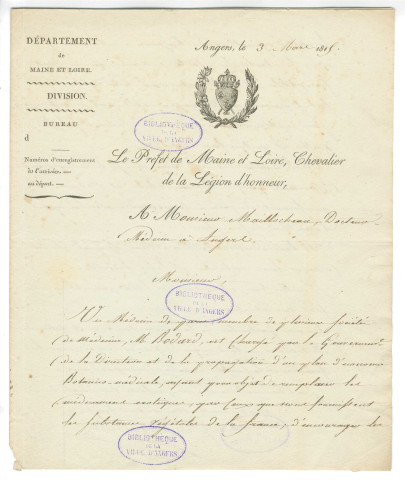 DÉPARTEMENT
de
MAINE ET LOIRE.
DIVISION.
BUREAU
d
Numéros d'enregistrement
de l'arrivée. —
au départ. —
Angers, le 3 Mars 1815.
BIBLIOTHÈQUE
DE LA
VILLE D'ANGERS
Le Préfet de Maine et Loire, Chevalier
de la Légion d'honneur,
A Monsieur Docteur
Médecin à Angers.
Monsieur,
BIBLIOTHÈQUE
DE LA
VILLE D'ANGERS
Un Médecin de Paris, membre de plusieurs sociétés
de Médecine, M. Bodard, est chargé par le Gouvernement
de la Direction et de la propagation d'un plan
Botanico-médicale, ayant pour objet de remplacer les
médicamens exotiques, par ceux que nous fournissent
les substances végétales de la france, d'encourager les
BIBLIOTHÈQUE
DE LA
VILLE D'ANGERS